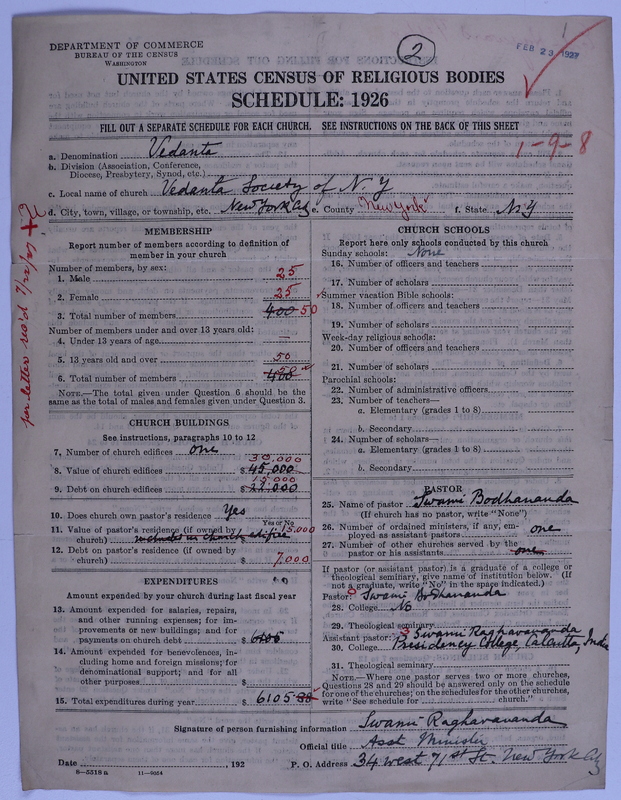 DEPARTMENT OF COMMERCE
BUREAU OF THE CENSUS
WASHINGTON
2
FEB 23 1927
UNITED STATES CENSUS OF RELIGIOUS BODIES
SCHEDULE: 1926
FILL OUT A SEPARATE SCHEDULE FOR EACH CHURCH. SEE INSTRUCTIONS ON THE BACK OF THIS SHEET
1-9-8
a. Denomination Vedanta
b. Division (Association, Conference, Diocese, Presbytery, Synod, etc.)
c. Local name of church Vedanta Society of N. Y
d. City, town, village, or township, etc. New York City e. County New York f. State N.Y
per letter rec'd 7/22/27
MEMBERSHIP
Report number of members according to definition of member in your church
Number of members by sex:
1. Male 25
2. Female 25
3. Total number of members 400 50
Number of members under and over 13 years old:
4. Under 13 years of age —
5. 13 years old and over 50
6. Total number of members 400
NOTE.—The total given under Question 6 should be the same as the total of males and females given under Question 3.
CHURCH BUILDINGS
See instructions, paragraphs 10 to 12
7. Number of church edifices one
30,000
8. Value of church edifices $ 45,000
15,000
9. Debt on church edifices $ 22,000
10. Does church own pastor's residence Yes
Yes or No
11. Value of pastor's residence (if owned by church) 15,000 included in church edifice
12. Debt on pastor's residence (if owned by church) $ 7,000
EXPENDITURES
Amount expended by your church during last fiscal year
13. Amount expended for salaries, repairs, and other running expenses; for improvements or new buildings; and for payments on church debt $ 6105
14. Amount expended for benevolences, including home and foreign missions; for denominational support; and for all other purposes $
15. Total expenditures during year $ 6105
CHURCH SCHOOLS
Report here only schools conducted by this church
Sunday schools: None
16. Number of officers and teachers
17. Number of scholars
Summer vacation Bible schools:
18. Number of officers and teachers
19. Number of scholars
Week-day religious schools:
20. Number of officers and teachers
21. Number of scholars
Parochial schools:
22. Number of administrative officers
23. Number of teachers—
a. Elementary (grades 1 to 8)
b. Secondary
24. Number of scholars—
a. Elementary (grades 1 to 8)
b. Secondary
PASTOR
25. Name of pastor Swami Bodhananda
(If church has no pastor, write "None")
26. Number of ordained ministers, if any, employed as assistant pastors one
27. Number of other churches served by the pastor or his assistants one
If pastor (or assistant pastor) is a graduate of a college or theological seminary, give name of institution below. (If not a graduate, write "No" in the space indicated.)
Pastor: Swami Bodhananda
28. College No
29. Theological seminary
Assistant pastor: Swami Raghavananda
30. College Presidency College, Calcutta, India
31. Theological seminary
NOTE.—Where one pastor serves two or more churches, Questions 28 and 29 should be answered only on the schedule for one of the churches; on the schedules for the other churches, write "See schedule for ........ church."
Signature of person furnishing information Swami Raghavananda
Official title Asst Minister
Date , 192 P. O. Address 34 West 71st St. New York City
8—5518 a 11—9054